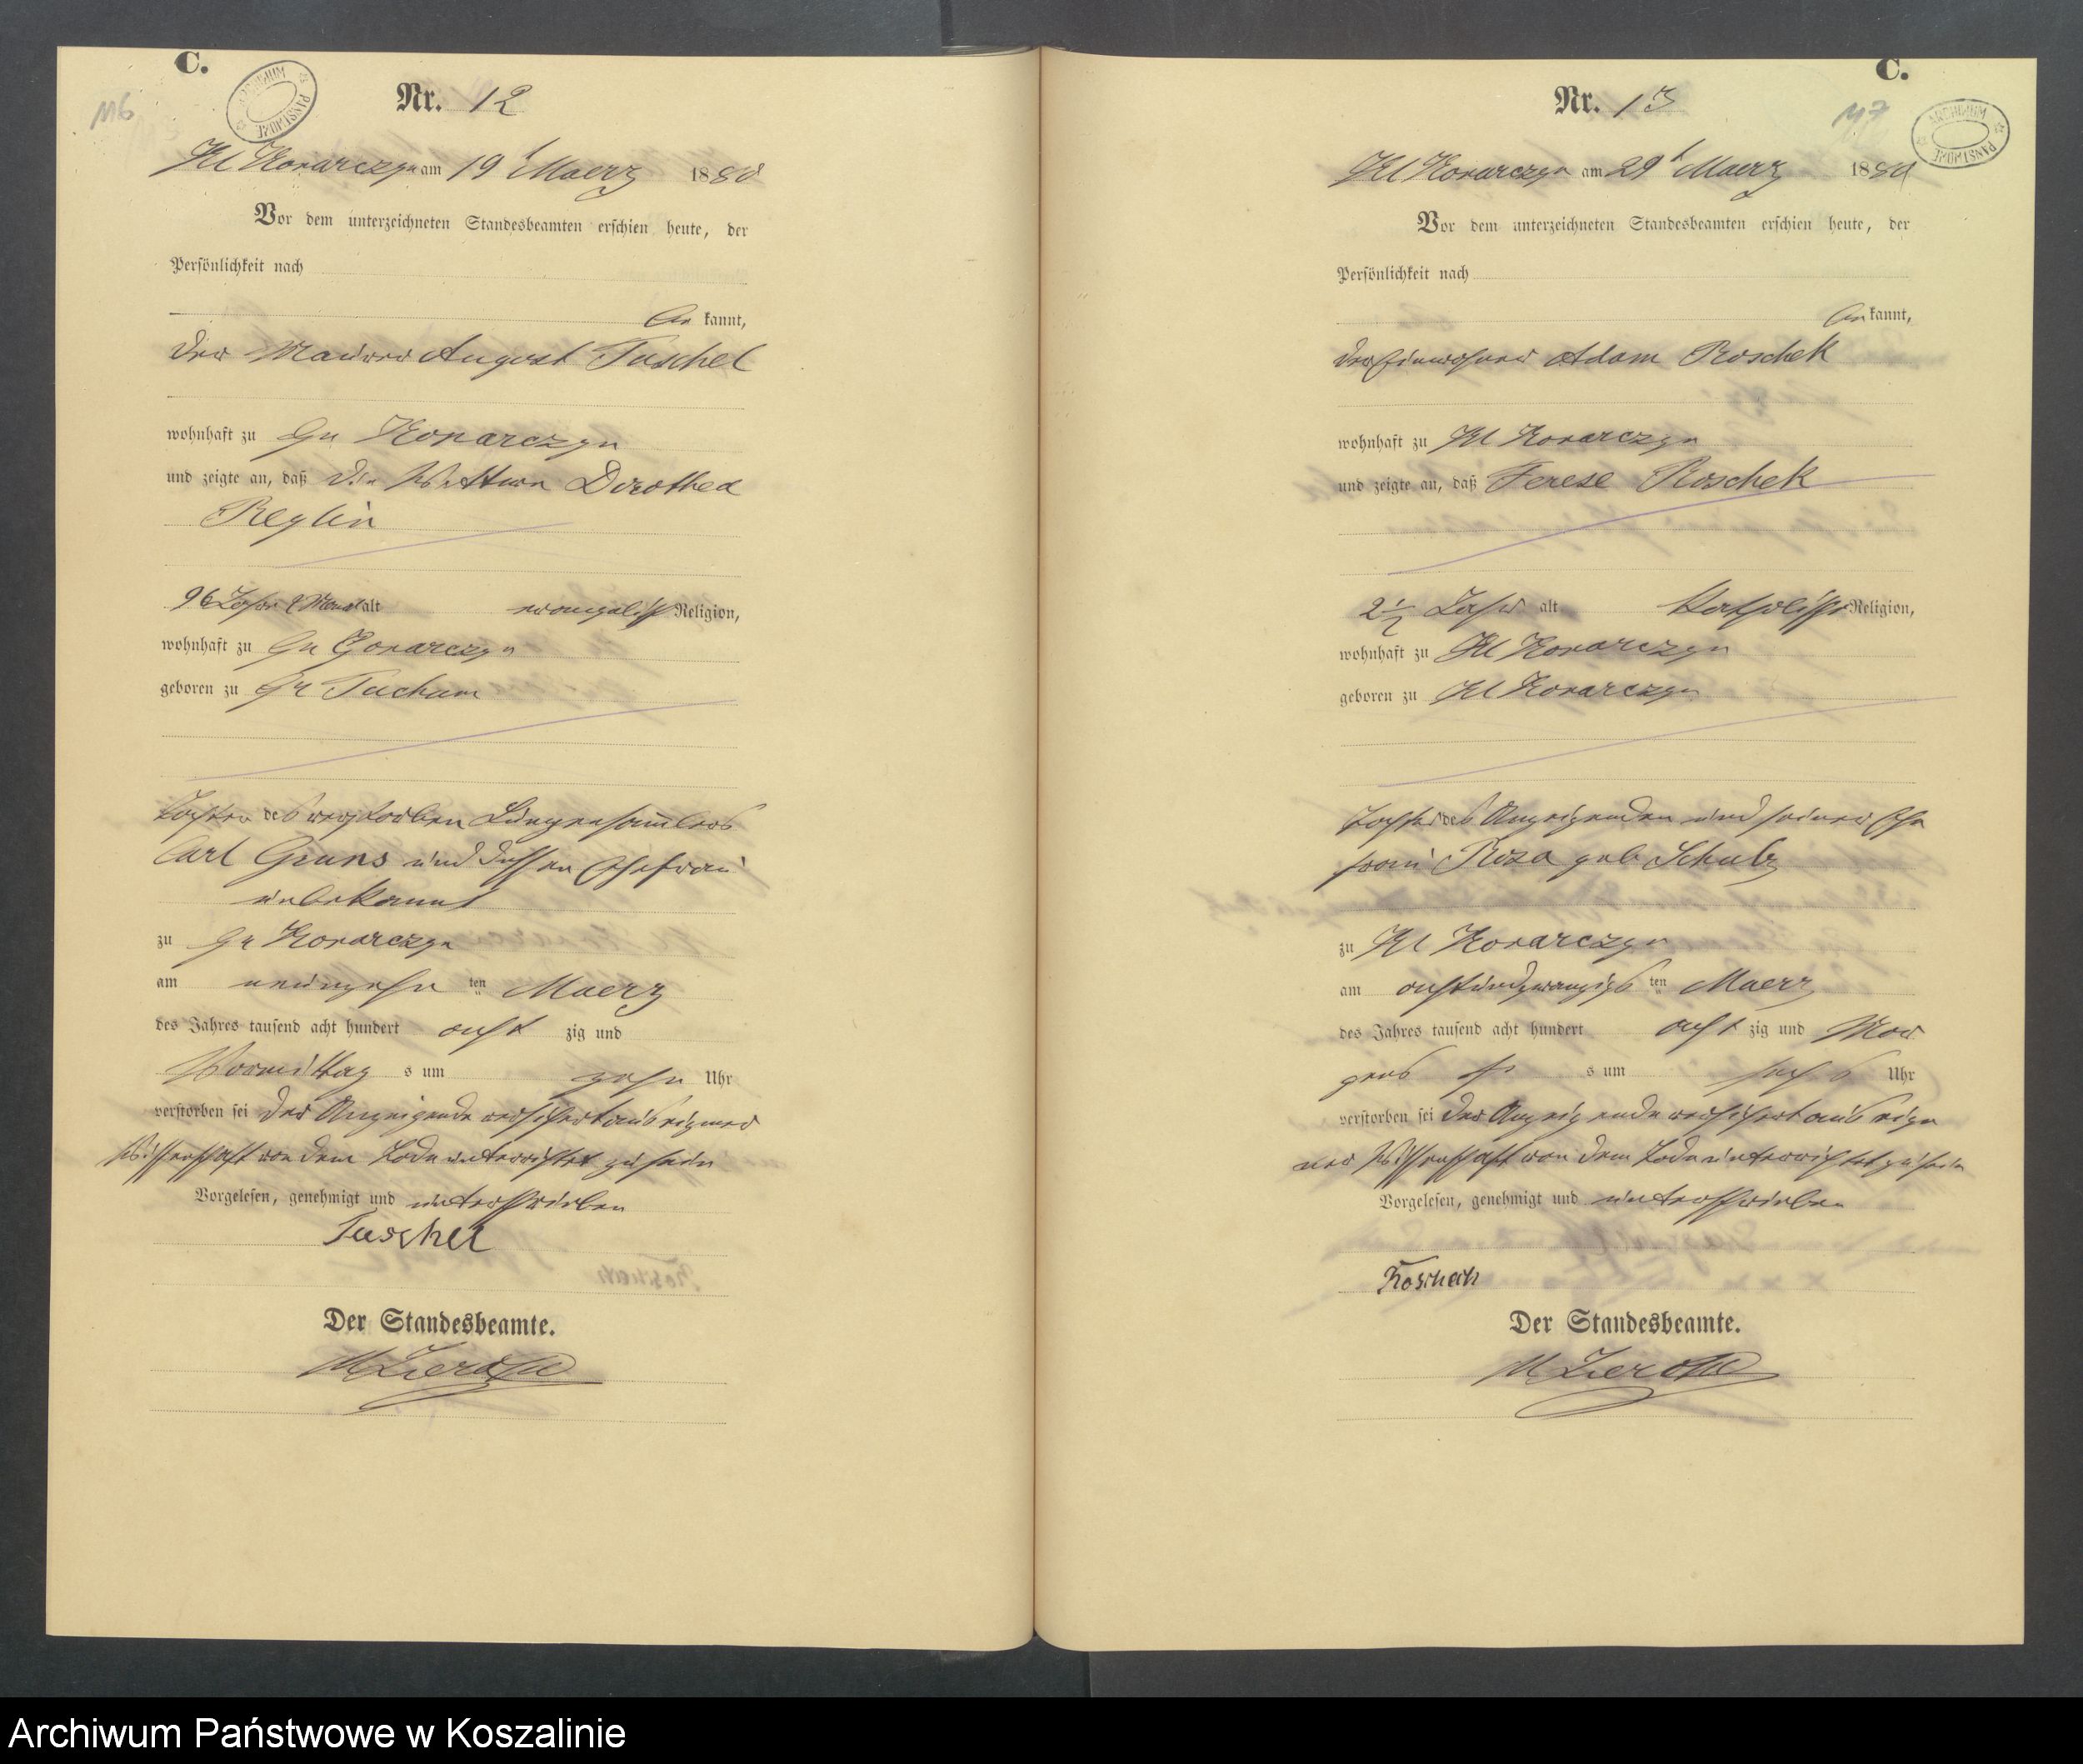 C.
116
ARCHIWUM PAŃSTWOWE
Nr. 12
Kl Konarczyn am 19 t Maerz 1880
Vor dem unterzeichneten Standesbeamten erschien heute, der
Persönlichkeit nach
be kannt,
der Maurer August Tuschel
wohnhaft zu Gr Konarczyn
und zeigte an, daß die Wittwe Dorothea
Reglin
96 Jahr 2 Monat alt evangelisch Religion,
wohnhaft zu Gr Konarczyn
geboren zu Gr Tuchum
Tochter des verstorben
Carl Grans und dessen Ehefrau
unbekannt
zu Gr Konarczyn
am neunzehn ten Maerz
des Jahres tausend acht hundert acht zig und
Vormittag s um zehn Uhr
verstorben sei der Anzeigende versichert aus eigner
Wissenschaft von dem Tode unterrichtet zu sein
Vorgelesen, genehmigt und unterschrieben
Tuschel
Der Standesbeamte.
C.
117
ARCHIWUM PAŃSTWOWE
Nr. 13
Kl Konarczyn am 29 t Maerz 1880
Vor dem unterzeichneten Standesbeamten erschien heute, der
Persönlichkeit nach
be kannt,
der Einwohner Adam Roschek
wohnhaft zu Kl Konarczyn
und zeigte an, daß Terese Roschek
2 1/2 Jahr alt katholisch Religion,
wohnhaft zu Kl Konarczyn
geboren zu Kl Konarczyn
Tochter des Anzeigenden und seiner Ehe
frau Roza geb Schulz
zu Kl Konarczyn
am achtundzwanzigs ten Maerz
des Jahres tausend acht hundert acht zig und Mor
gens s um sechs Uhr
verstorben sei der Anzeigende versichert aus eige
ner Wissenschaft von dem Tode unterrichtet zu sein
Vorgelesen, genehmigt und unterschrieben
Der Standesbeamte.
Archiwum Państwowe w Koszalinie